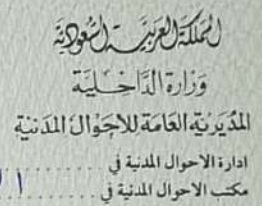 المملكة العربية السعودية
وزارة الداخلية
المديرية العامة للأحوال المدنية
ادارة الاحوال المدنية في ............
مكتب الاحوال المدنية في ............